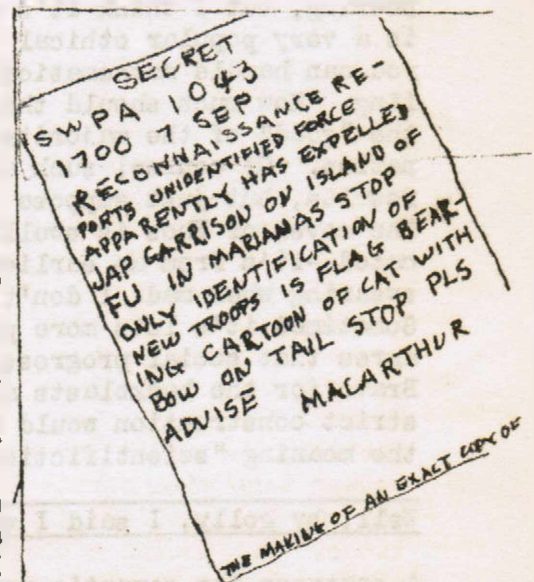 SECRET
SWPA 043
1700 SEP
RECONNAISSANCE RE-
PORTS UNIDENTIFIED FORCE
APPARENTLY HAS EXPELLED
JAP GARRISON ON ISLAND OF
FU IN MARIANAS STOP
ONLY IDENTIFICATION OF
NEW TROOPS IS FLAG BEAR-
ING CARTOON OF CAT WITH
BOW ON TAIL STOP PLS
ADVISE MACARTHUR
THE MAKING OF AN EXACT COPY OF